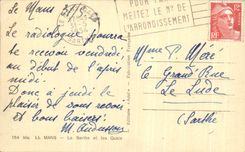 Le Mans
Le radiologue pourra
te recevoir vendredi,
au début de l'après
midi.
Donc à jeudi le
plaisir de vous revoir
et bons baisers.
METTEZ LE Nº DE
L'ARRONDISSEMENT
Mme P. Méré
Grand'Rue
Le Lude
(Sarthe)
LE MANS - La Sarthe et les Quais